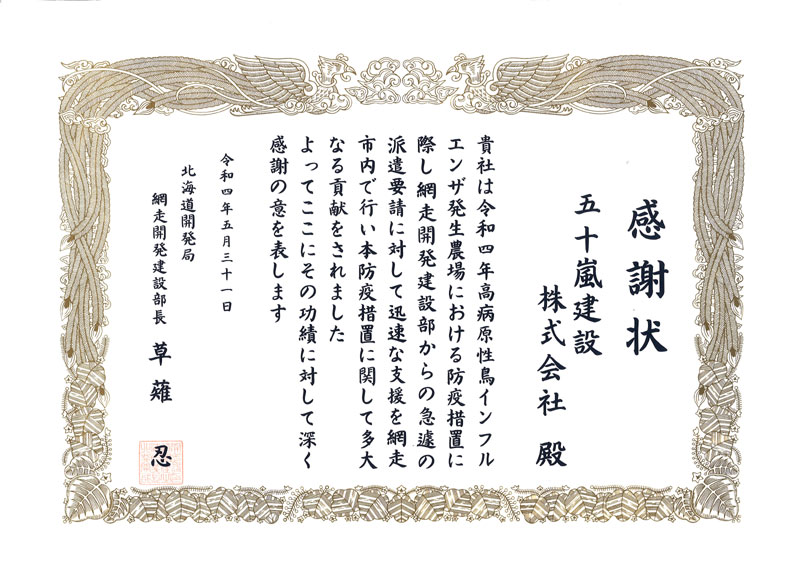 感謝状
五十嵐建設
株式会社 殿
貴社は令和四年高病原性鳥インフル
エンザ発生農場における防疫措置に
際し網走開発建設部からの急遽の
派遣要請に対して迅速な支援を網走
市内で行い本防疫措置に関して多大
なる貢献をされました
よってここにその功績に対して深く
感謝の意を表します
令和四年五月三十一日
北海道開発局
網走開発建設部長 草薙 忍